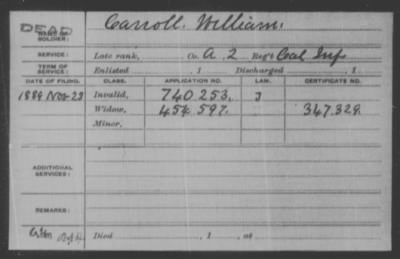 DEAD
NAME OF SOLDIER:
Carroll. William.
SERVICE:
Late rank, Co. A. 2 Reg't Inf
TERM OF SERVICE:
Enlisted , 1 Discharged , 1
DATE OF FILING. CLASS. APPLICATION NO. LAW. CERTIFICATE NO.
1889 Nov 23 Invalid, 740.253.
Widow, 454.597. 347.329.
Minor,
ADDITIONAL SERVICES:
REMARKS:
Died , 1 , at